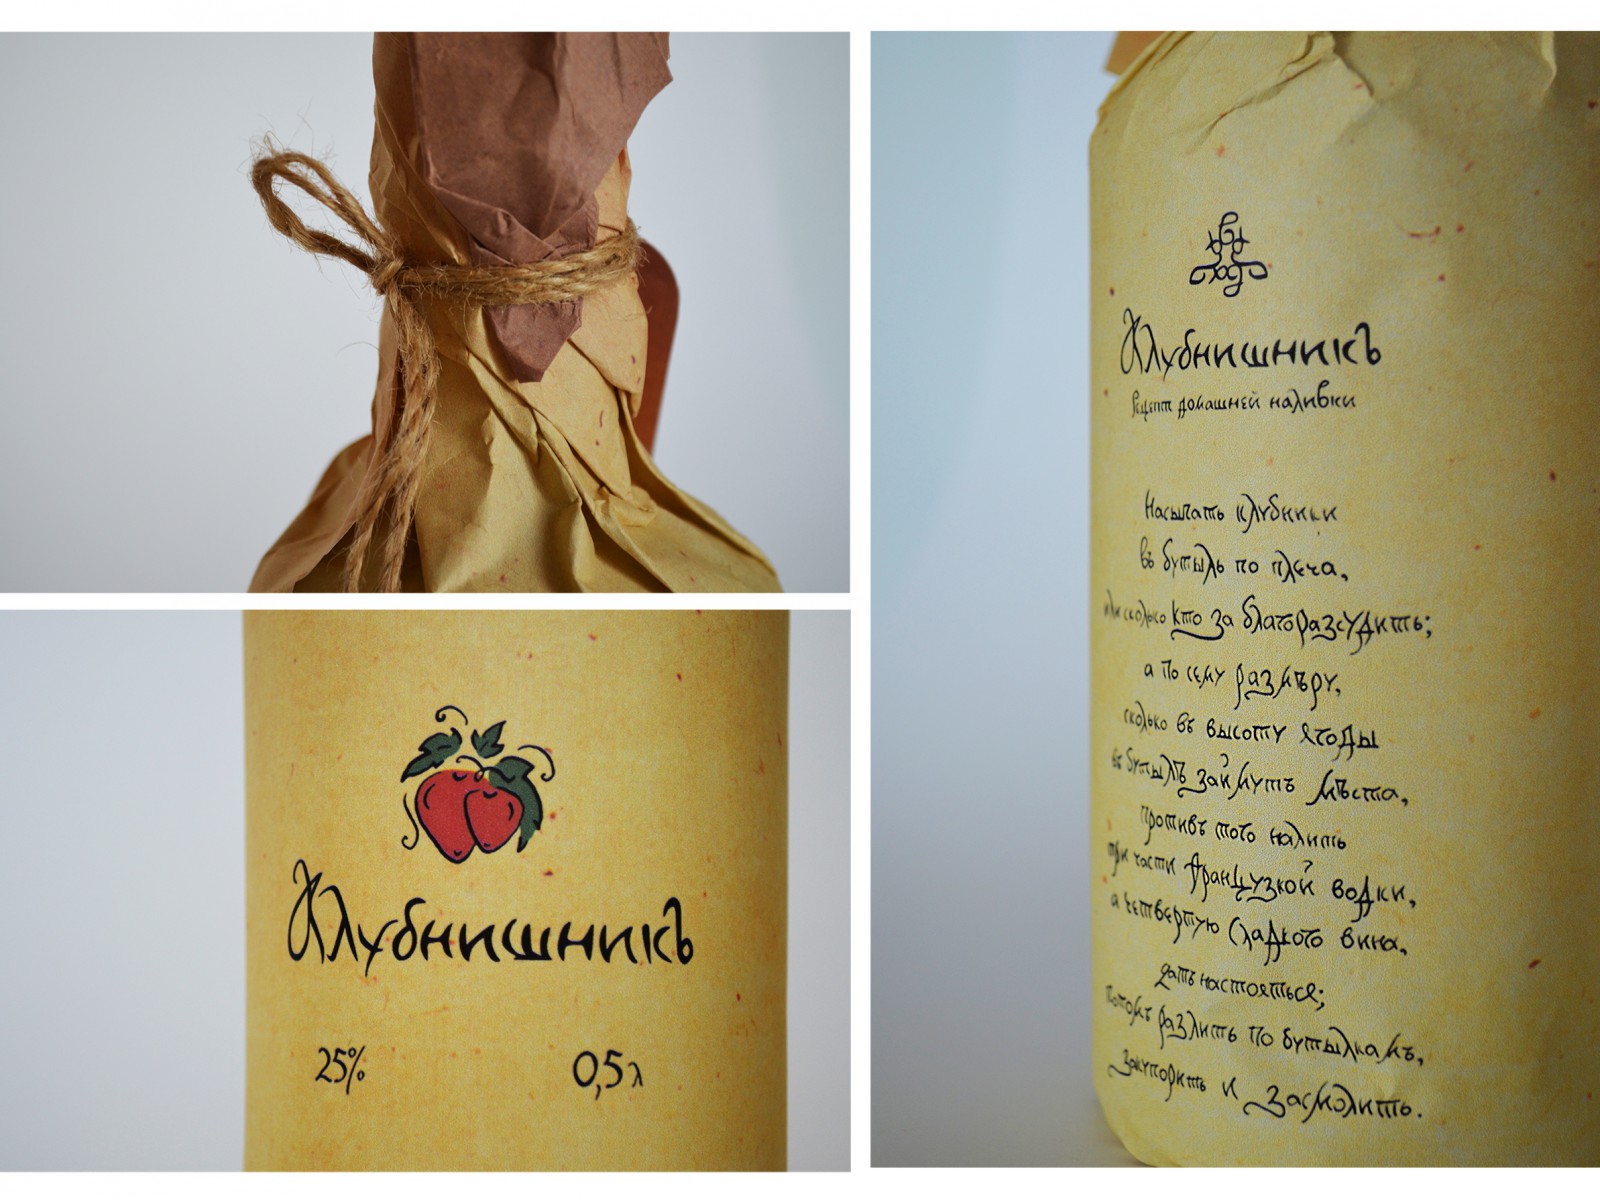 Клубнишникъ
25%
0,5 л
Клубнишникъ
Рецепт домашней наливки
Насыпать клубники
въ бутыль по плеча,
или сколько кто за благоразсудитъ;
а по сему размѣру,
сколько въ высоту ягоды
въ бутылѣ займутъ мѣста,
противъ того налить
три части французкой водки,
а четвертую сладкого вина,
дать настояться;
потомъ разлить по бутылкамъ,
закупорить и засмолить.